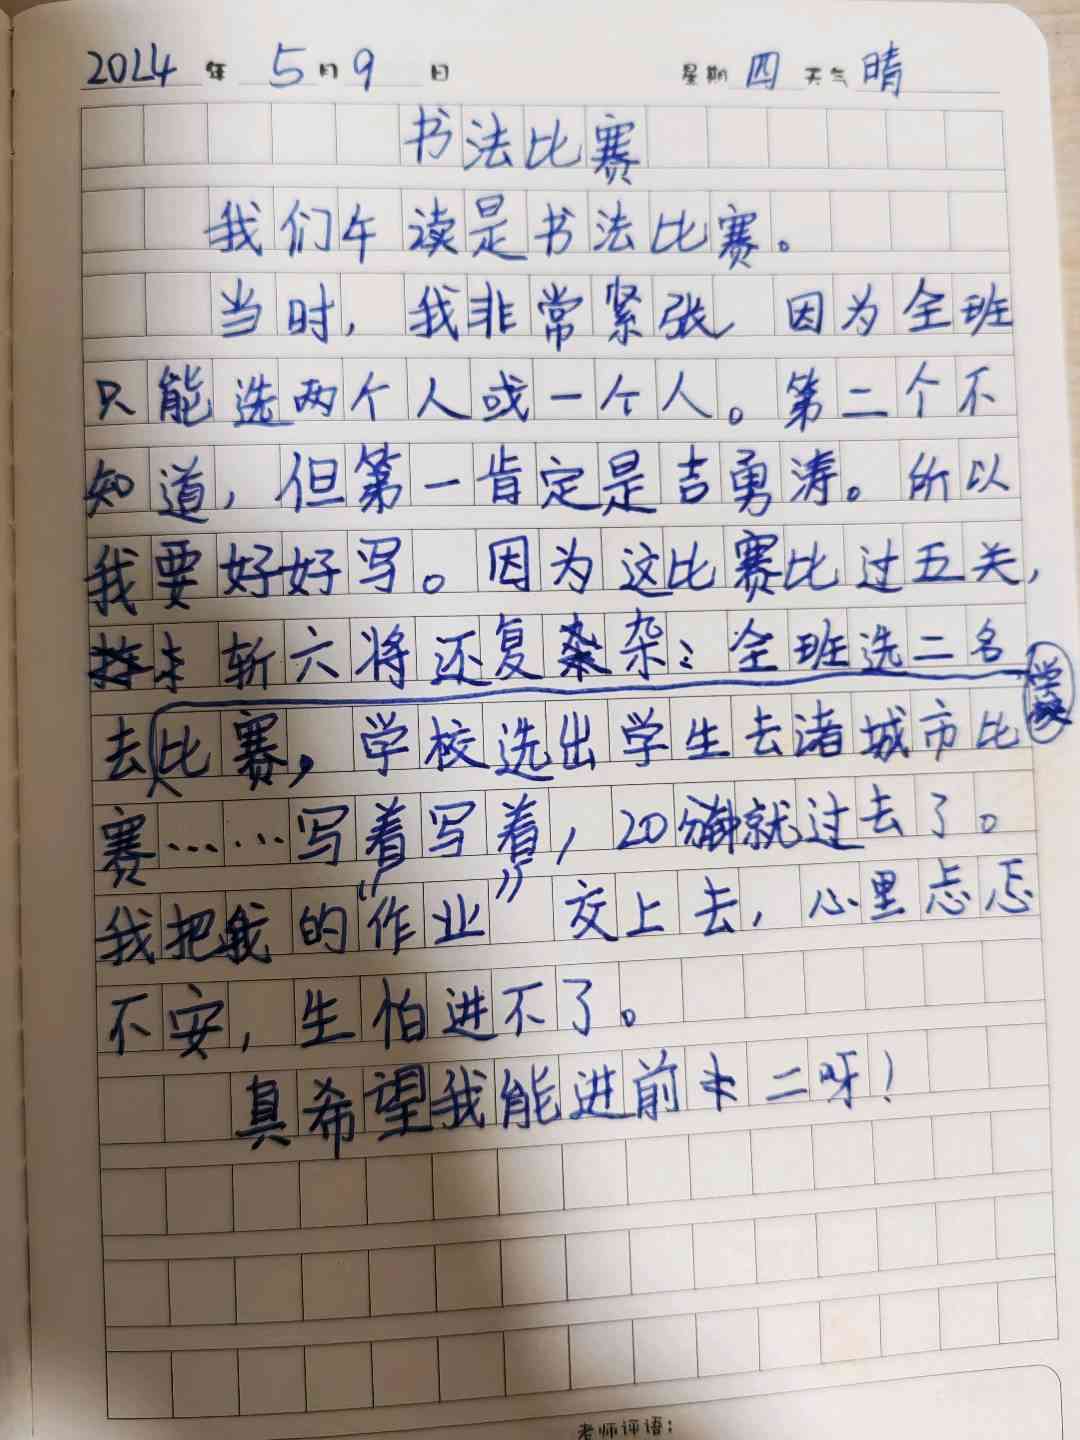 2024年5月9日 星期四 天气晴
书法比赛
我们午读是书法比赛。
当时，我非常紧张 因为全班
只能选两个人或一个人。第二个不
知道，但第一肯定是吉勇涛。所以
我要好好写。因为这比赛比过五关，
斩六将还复杂：全班选二名
去学校比赛，学校选出学生去诸城市比
赛……写着写着，20分钟就过去了。
我把我的“作业”交上去，心里忐忑
不安，生怕进不了。
真希望我能进前二呀！
老师评语：